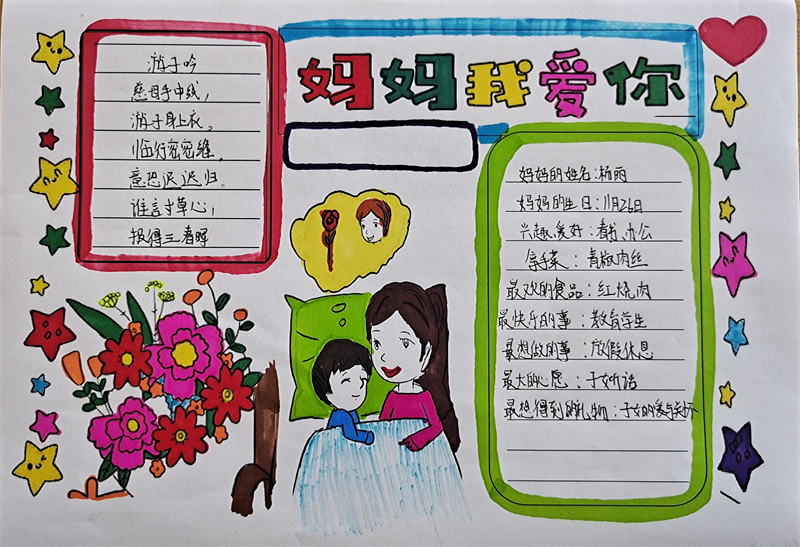 妈妈我爱你
游子吟
慈母手中线，
游子身上衣，
临行密密缝，
意恐迟迟归。
谁言寸草心，
报得三春晖
妈妈的姓名：杨丽
妈妈的生日：11月26日
兴趣爱好：看书 办公
拿手菜：青椒肉丝
最欢的食品：红烧肉
最快乐的事：教育学生
最想做的事：放假休息
最大的心愿：子女听话
最想得到的礼物：子女的爱与关怀